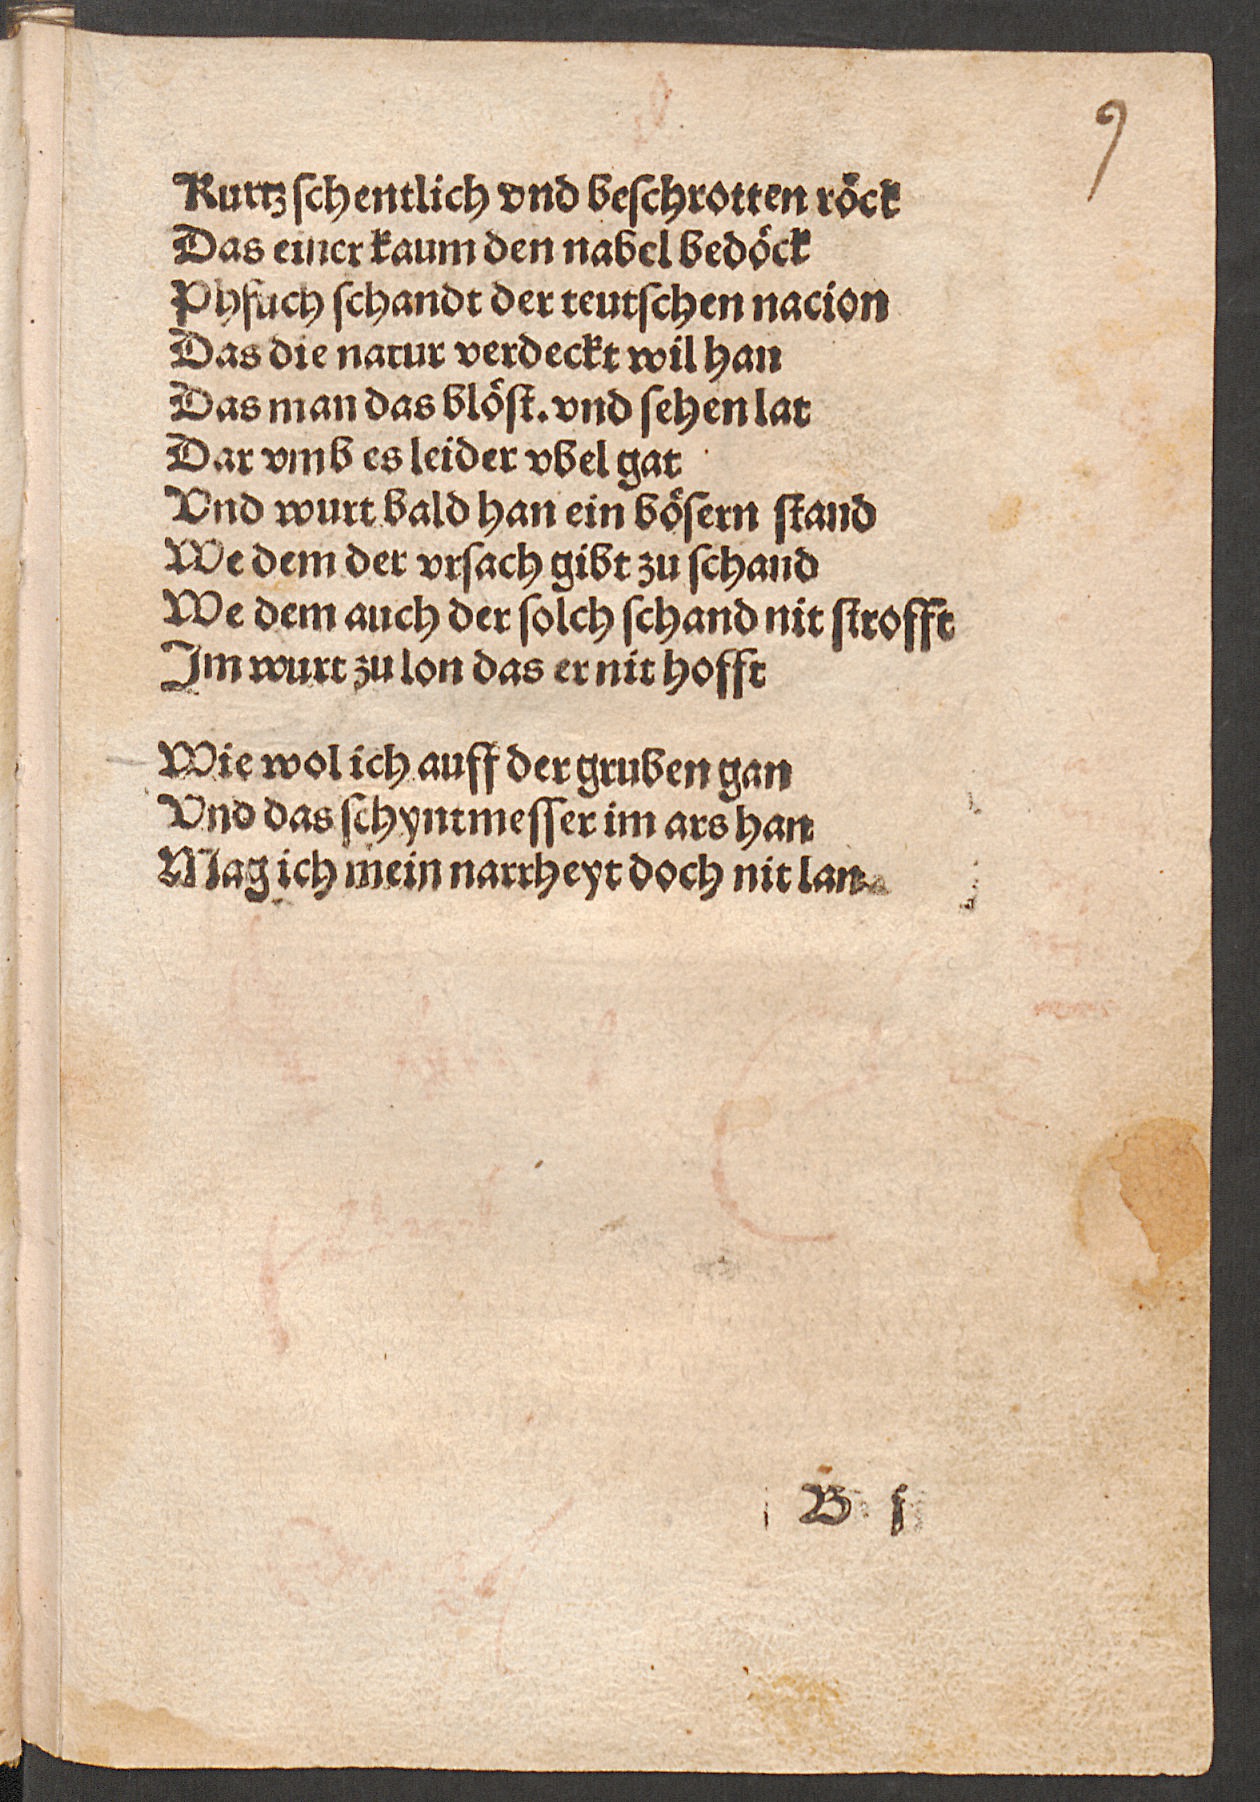 9
Kurtz schentlich vnd beschrotten röck
Das einer kaum den nabel bedöck
Phfuch schandt der teutschen nacion
Das die natur verdeckt wil han
Das man das blöst. vnd sehen lat
Dar vmb es leider vbel gat
Vnd wurt bald han ein bösern stand
We dem der vrsach gibt zu schand
We dem auch der solch schand nit strofft
Im wurt zu lon das er nit hofft
Wie wol ich auff der gruben gan
Vnd das schyntmesser im ars han
Mag ich mein narrheyt doch nit lan
B j